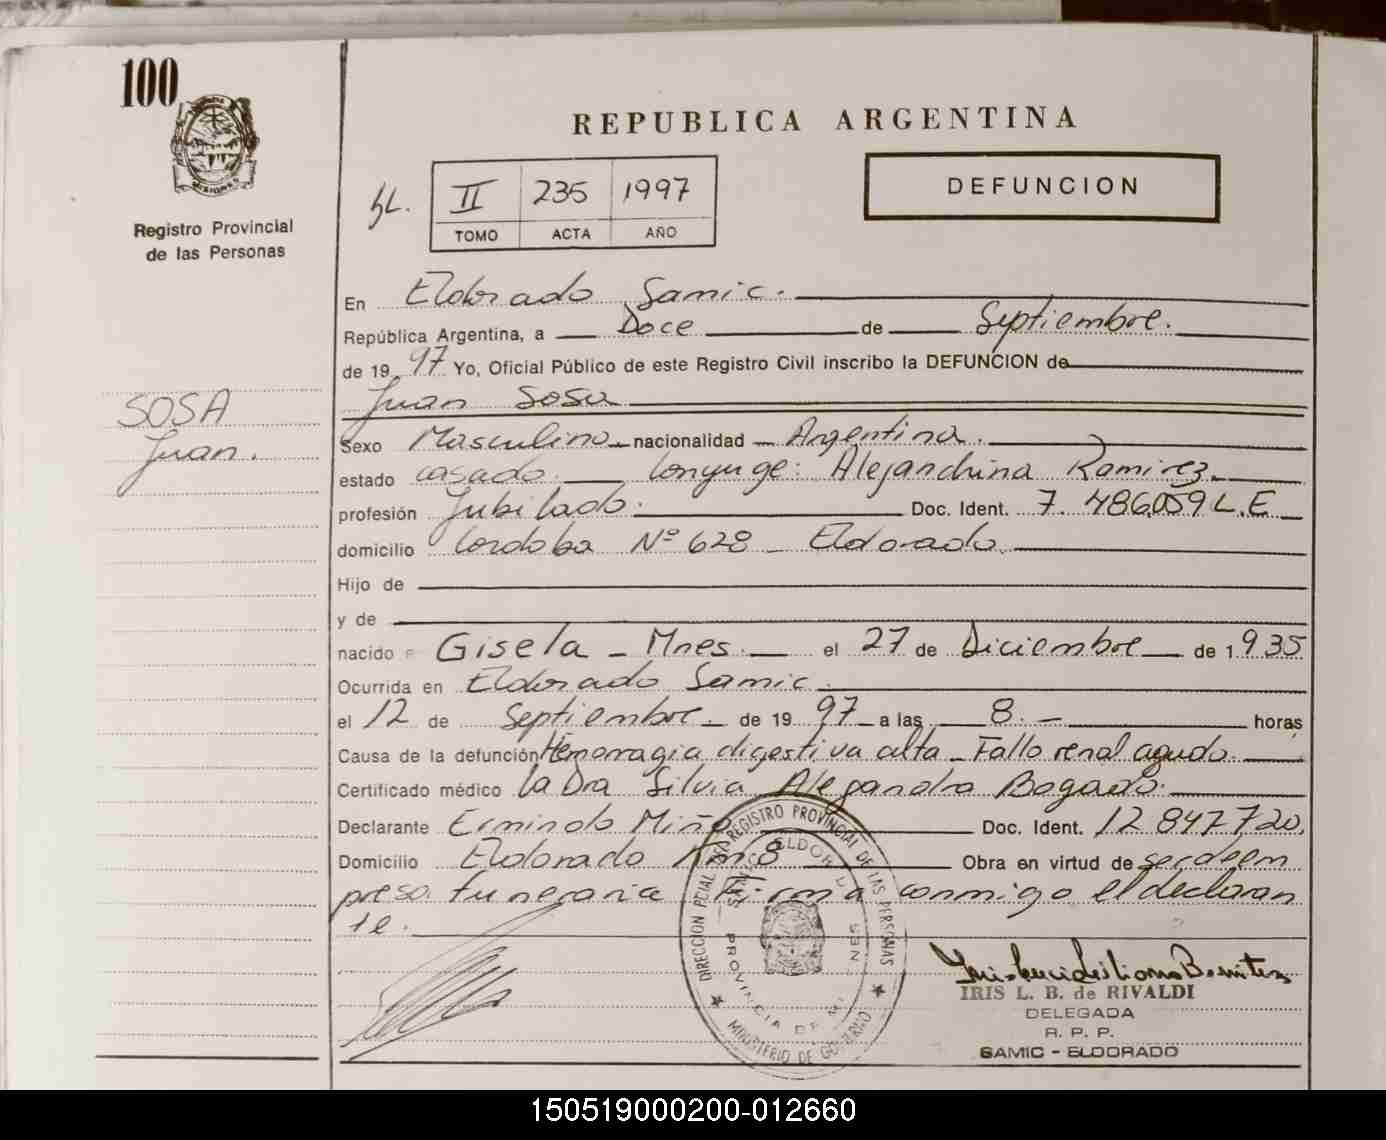 100
MISIONES
Registro Provincial
de las Personas
REPUBLICA ARGENTINA
DEFUNCION
II 235 1997
TOMO ACTA AÑO
En Eldorado Samic.
República Argentina, a Doce de Septiembre.
de 19 97 Yo, Oficial Público de este Registro Civil inscribo la DEFUNCION de
Juan Sosa
SOSA
Juan.
Sexo Masculino nacionalidad Argentina.
estado casado. Conyuge: Alejandrina Ramirez.
profesión Jubilado. Doc. Ident. 7.486.059 L.E
domicilio Cordoba Nº 628 - Eldorado.
Hijo de
y de
nacido Gisela - Mnes. el 27 de Diciembre de 1.935
Ocurrida en Eldorado Samic.
el 12 de Septiembre. de 19 97 a las 8. - horas
Causa de la defunción Hemorragia digestiva alta - Fallo renal agudo.
Certificado médico la Dra Silvia Alejandra Bogado.
Declarante Ermindo Miño Doc. Ident. 12 847720.
Domicilio Eldorado Km 8 Obra en virtud de ser de em
presa funeraria Firma conmigo el declaran
te.
DIRECCION PCIAL DEL REGISTRO PROVINCIAL DE LAS PERSONAS
SAMIC ELDORADO
PROVINCIA DE MISIONES
MINISTERIO DE GOBIERNO
IRIS L. B. de RIVALDI
DELEGADA
R. P. P.
SAMIC - ELDORADO
150519000200-012660